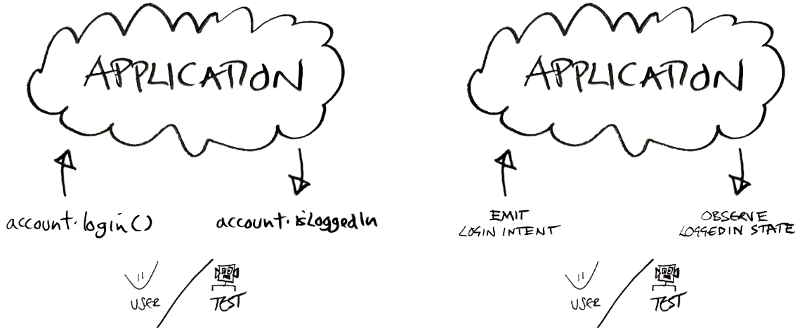 APPLICATION
account.login()
account.isLoggedIn
USER
TEST
APPLICATION
EMIT
LOGIN INTENT
OBSERVE
LOGGEDIN STATE
USER
TEST